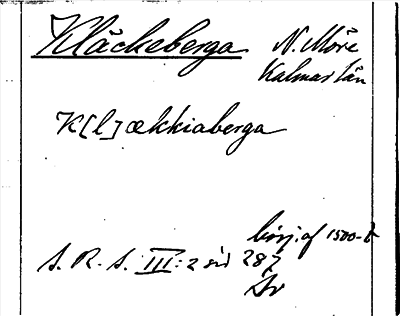 Kläckeberga N. Möre
Kalmar län
K[l]ækkiaberga
börj. af 1500-t
S. R. S. III: 2 sid 287
Sv